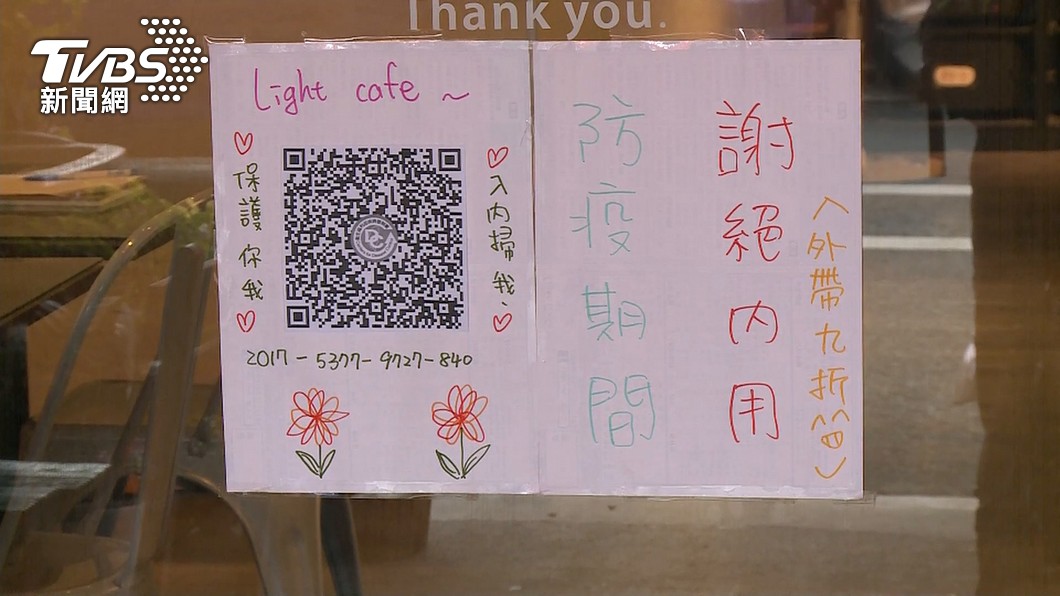 Thank you.
TVBS
新聞網
Light cafe ~
保護你我
入內掃我、
2017-5377-9727-840
防疫期間
謝絕內用
外帶九折